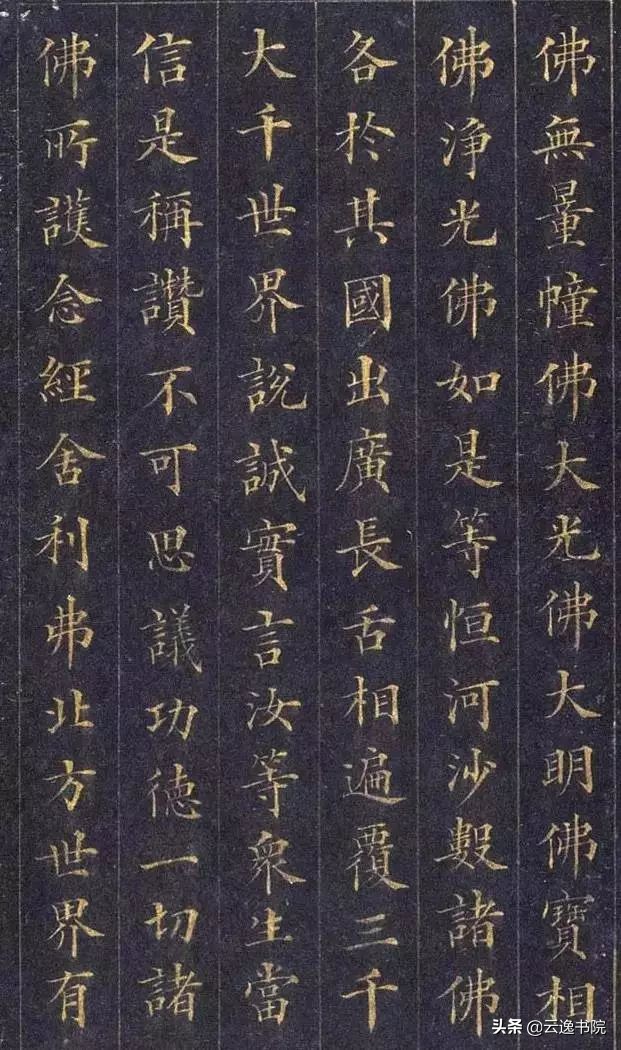 佛無量幢佛大光佛大明佛寶相
佛淨光佛如是等恒河沙數諸佛
各於其國出廣長舌相遍覆三千
大千世界說誠實言汝等衆生當
信是稱讚不可思議功德一切諸
佛所護念經舍利弗北方世界有
头条 @云逸书院